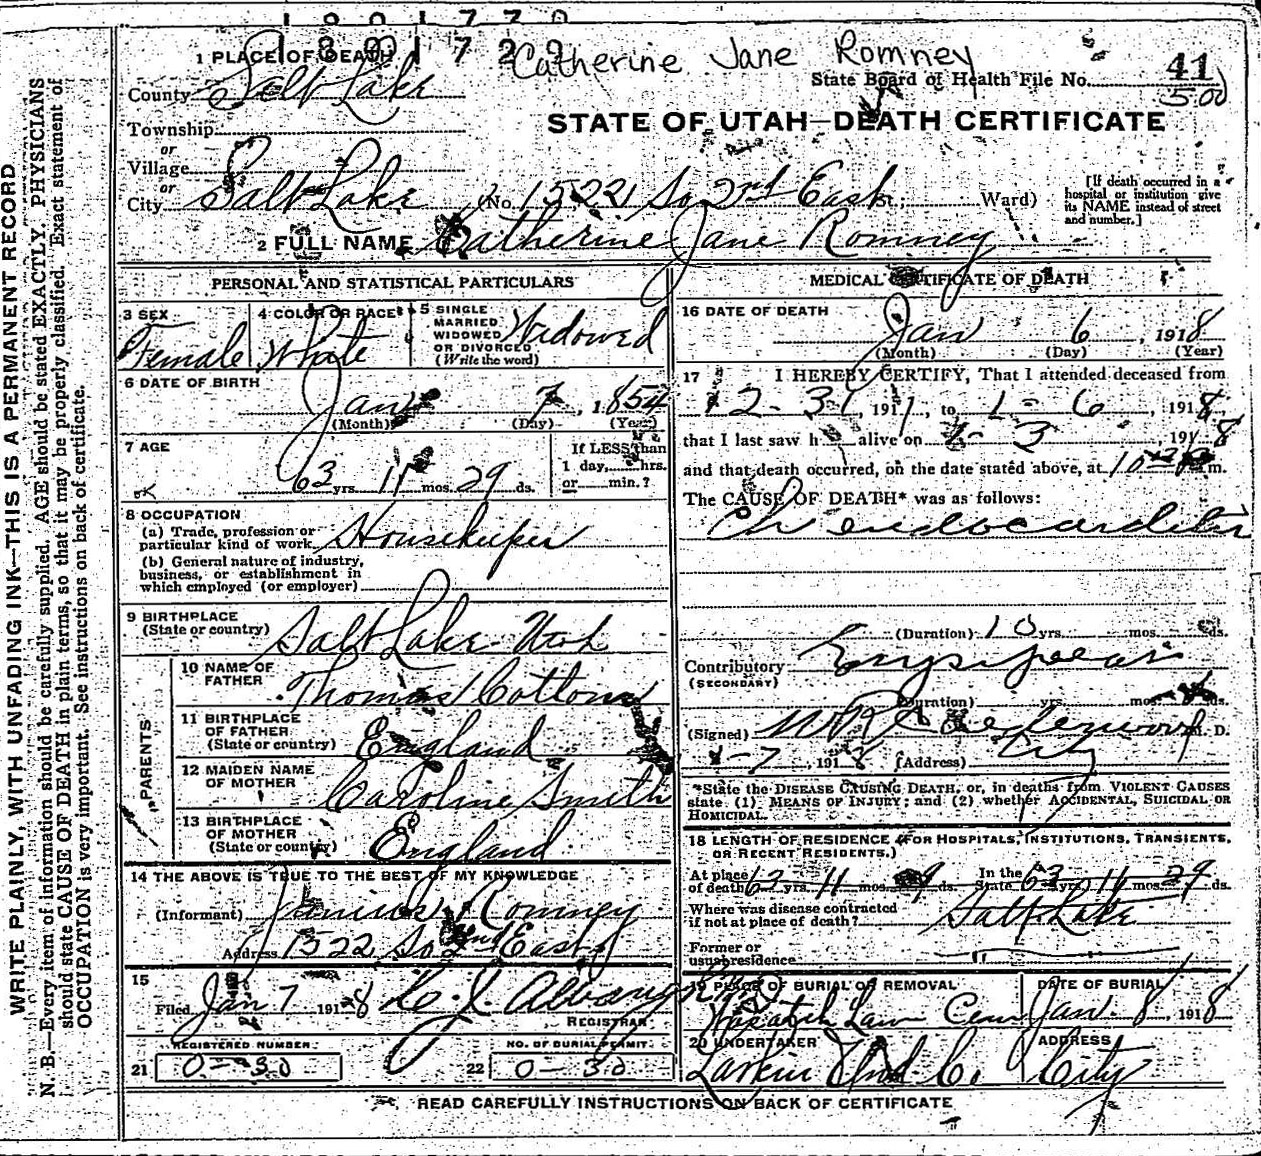 1801729
Catherine Jane Romney
1 PLACE OF DEATH
State Board of Health File No. 41
500
County Salt Lake
STATE OF UTAH—DEATH CERTIFICATE
Township
or
Village
or
City Salt Lake (No. 1522 So 2nd East; Ward)
[If death occurred in a hospital or institution give its NAME instead of street and number.]
2 FULL NAME Catherine Jane Romney
PERSONAL AND STATISTICAL PARTICULARS
3 SEX Female
4 COLOR OR RACE White
5 SINGLE MARRIED WIDOWED OR DIVORCED (Write the word) Widowed
6 DATE OF BIRTH
Jan 7, 1854
(Month) (Day) (Year)
7 AGE
63 yrs. 11 mos. 29 ds.
If LESS than
1 day, hrs.
or min.?
OK
8 OCCUPATION
(a) Trade, profession or
particular kind of work Housekeeper
(b) General nature of industry,
business, or establishment in
which employed (or employer)
9 BIRTHPLACE
(State or country) Salt Lake Utah
PARENTS
10 NAME OF
FATHER Thomas Cottom
11 BIRTHPLACE
OF FATHER
(State or country) England
12 MAIDEN NAME
OF MOTHER Caroline Smith
13 BIRTHPLACE
OF MOTHER
(State or country) England
14 THE ABOVE IS TRUE TO THE BEST OF MY KNOWLEDGE
(Informant) Junius Romney
Address 1522 So 2nd East
15
Filed Jan 7 1918
REGISTRAR
REGISTERED NUMBER
21 0-30
NO. OF BURIAL PERMIT
22 0-30
MEDICAL CERTIFICATE OF DEATH
16 DATE OF DEATH
Jan 6, 1918
(Month) (Day) (Year)
17 I HEREBY CERTIFY, That I attended deceased from
12-31, 1917, to 1-6, 1918
that I last saw h alive on 1-3, 1918
and that death occurred, on the date stated above, at m.
The CAUSE OF DEATH* was as follows:
Ch endocarditis
(Duration) 10 yrs. mos. ds.
Contributory Erysipelas
(SECONDARY)
(Duration) yrs. mos. ds.
(Signed) M. D.
1-7, 1918 (Address) City
*State the DISEASE CAUSING DEATH, or, in deaths from VIOLENT CAUSES
state (1) MEANS OF INJURY; and (2) whether ACCIDENTAL, SUICIDAL OR
HOMICIDAL.
18 LENGTH OF RESIDENCE (FOR HOSPITALS, INSTITUTIONS, TRANSIENTS,
OR RECENT RESIDENTS.)
At place
of death yrs. 11 mos. ds. In the State 63 yrs. 11 mos. 29 ds.
Where was disease contracted
if not at place of death? Salt Lake
Former or
usual residence
19 PLACE OF BURIAL OR REMOVAL
Wasatch Lawn Cem
DATE OF BURIAL
Jan. 8, 1918
20 UNDERTAKER
Larkin Und Co.
ADDRESS
City
READ CAREFULLY INSTRUCTIONS ON BACK OF CERTIFICATE
WRITE PLAINLY, WITH UNFADING INK—THIS IS A PERMANENT RECORD
N. B.—Every item of information should be carefully supplied. AGE should be stated EXACTLY. PHYSICIANS
should state CAUSE OF DEATH in plain terms, so that it may be properly classified. Exact statement of
OCCUPATION is very important. See instructions on back of certificate.